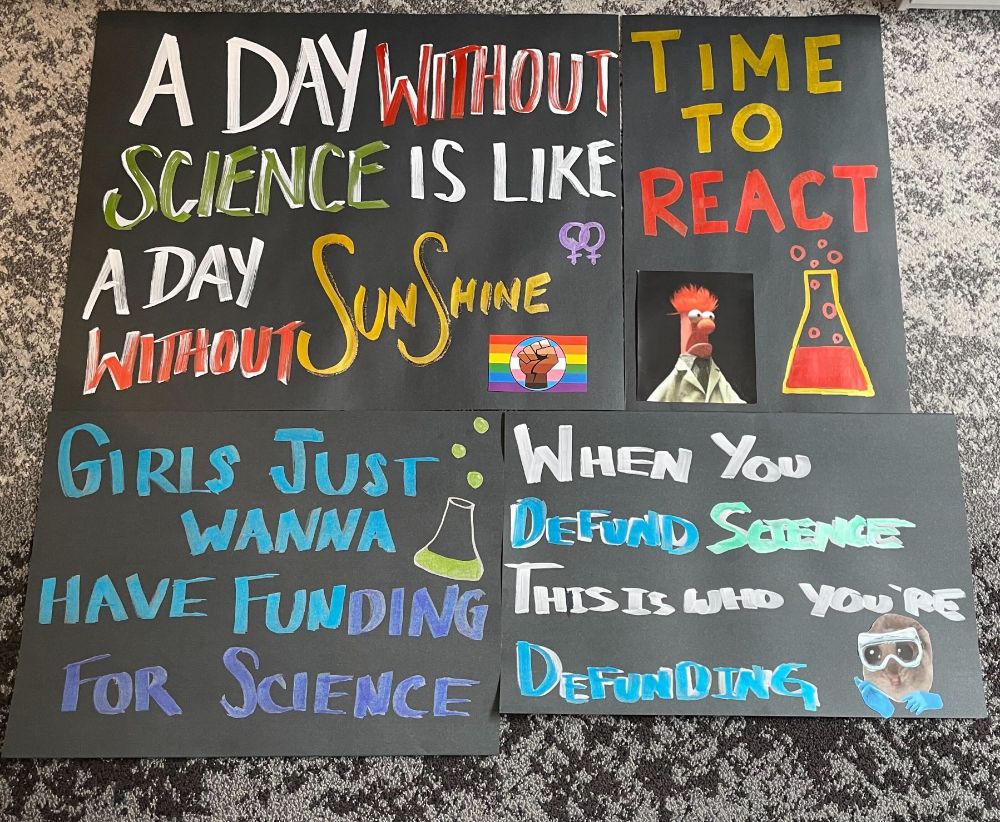 A DAY WITHOUT
SCIENCE IS LIKE
A DAY SUNSHINE
WITHOUT
TIME
TO
REACT
GIRLS JUST
WANNA
HAVE FUNDING
FOR SCIENCE
WHEN YOU
DEFUND SCIENCE
THIS IS WHO YOU'RE
DEFUNDING